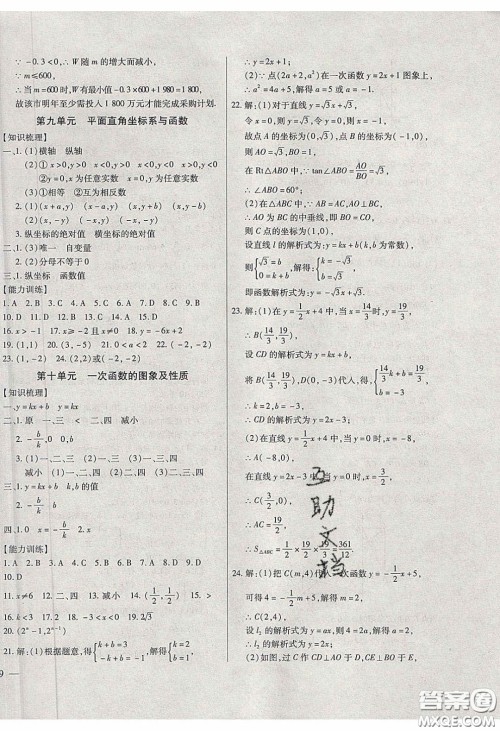 ∴ －0.3＜0,∴ W 随 m 的增大而减小,
∵ m≤600,
∴ 当 m＝600 时,W 最小值是－0.3×600＋1 980＝1 800,
故该市明年至少需投入 1 800 万元才能完成采购计划.
第九单元 平面直角坐标系与函数
【知识梳理】
一、1.(1)横轴 纵轴
(2)①x＞0,y＞0 x＜0,y＞0 x＜0,y＜0 x＞0,y＜0
②y＝0,x 为任意实数 x＝0,y 为任意实数
(3)①相等 ②互为相反数
2.(1)(x＋a,y) (x－a,y) (x,y＋b) (x,y－b)
(2)(x,－y) (－x,y) (－x,－y)
3.纵坐标的绝对值 横坐标的绝对值
二、1.(3)唯一 自变量
2.(2)分母不等于0
三、1.纵坐标 函数值
【能力训练】
16.x＞4
23.(1)(1,4)
第十单元 一次函数的图象及性质
【知识梳理】
一、y＝kx＋b y＝kx
二、1.原 一、三 增大 二、四 减小
2.－b/k,0 0,b
3.(1)一、二、三 (2)一、三、四 增大
(3)一、二、四 (4)二、三、四 减小
三、1.y＝kx＋b k,b 的值
2.－b/k 0
四、1.0 x＝－b/k 2.x
【能力训练】
10.D
11.x≠6 12.二、四 13.减小 14.(1/2,1/2) 15.＞
16.k＜3 17.－3＜x＜0 18.－1 19.m＞1
20.(2ⁿ－1,2ⁿ⁻¹)
21.解:(1)根据题意,得{k＋b＝3 －k＋b＝－1,解得{k＝2 b＝1,
∴ y＝2x＋1;
(2)∵ 点(2a＋2,a²)在一次函数 y＝2x＋1 图象上,
∴ a²＝4a＋5,解得 a＝5 或 a＝－1.
22.解:(1)对于直线 y＝√3x＋√3,
故点 A 的坐标为(0,√3),点 B 的坐标为(－1,0),
则 AO＝√3,BO＝1,
在 Rt△ABO 中,∵ tan∠ABO＝AO/BO＝√3,
∴ ∠ABO＝60°;
(2)在△ABC 中,∵ AB＝AC,AO⊥BC,
∴ AO 为 BC 的中垂线,即 BO＝CO,
则 C 点的坐标为(1,0),
设直线 l 的解析式为:y＝kx＋b(k,b 为常数),
则{√3＝b 0＝k＋b,解得:{k＝－√3 b＝√3,
即函数解析式为:y＝－√3x＋√3.
23.解:(1)在 y＝1/2x＋4 中,当 x＝14/3时,y＝19/3,
∴ B(14/3,19/3),
设 CD 的解析式为 y＝kx＋b,
∴ k＝2,∴ CD 的解析式为 y＝2x－3;
(2)在直线 y＝1/2x＋4 中,当 y＝0 时,x＝－8,
∴ A(－8,0),
在直线 y＝2x－3 中,当 y＝0 时,x＝3/2,
∴ C(3/2,0),
∴ AC＝19/2,
∴ S△ABC＝1/2×19/2×19/3＝361/12.
24.解:(1)把 C(m,4)代入一次函数 y＝－1/2x＋5,
可得 4＝－1/2m＋5,解得 m＝2,
∴ C(2,4),
设 l₂ 的解析式为 y＝ax,则 4＝2a,解得 a＝2,
∴ l₂ 的解析式为 y＝2x;
(2)如图,过 C 作 CD⊥AO 于 D,CE⊥BO 于 E,
互助文档
答案圈
MXQE.COM